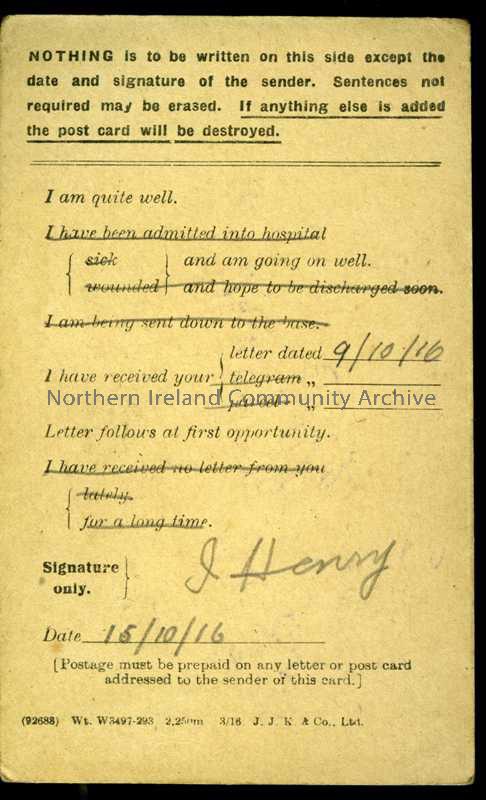 NOTHING is to be written on this side except the
date and signature of the sender. Sentences not
required may be erased. If anything else is added
the post card will be destroyed.
I am quite well.
I have been admitted into hospital
sick and am going on well.
wounded and hope to be discharged soon.
I am being sent down to the base.
letter dated 9/10/16
I have received your telegram „
parcel „
Northern Ireland Community Archive
Letter follows at first opportunity.
I have received no letter from you
lately.
for a long time.
Signature only. J Henry
Date 15/10/16
[Postage must be prepaid on any letter or post card
addressed to the sender of this card.]
(92688) Wt. W3497-293 2,250m 3/16 J. J. K. & Co., Ltd.